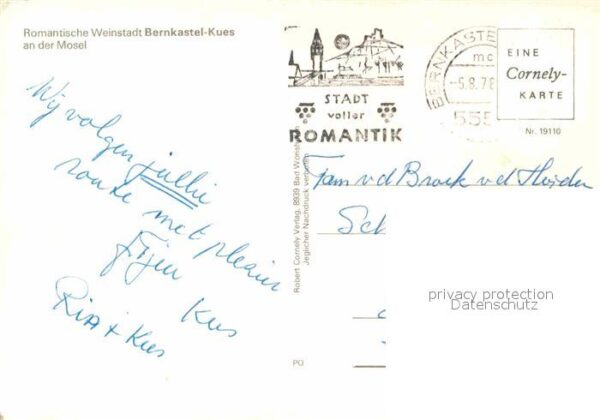 Romantische Weinstadt Bernkastel-Kues
an der Mosel
Wij volgen jullie
route met plezier
Fijn
Kus
Ria + Kees
STADT
voller
ROMANTIK
BERNKASTE
mc
-5.8.78
555
EINE
Cornely-
KARTE
Nr. 19110
Robert Cornely Verlag, 8939 Bad Wörishofen
Jeglicher Nachdruck verboten
Fam v d Broek v d Heijden
Sch
PO
privacy protection
Datenschutz